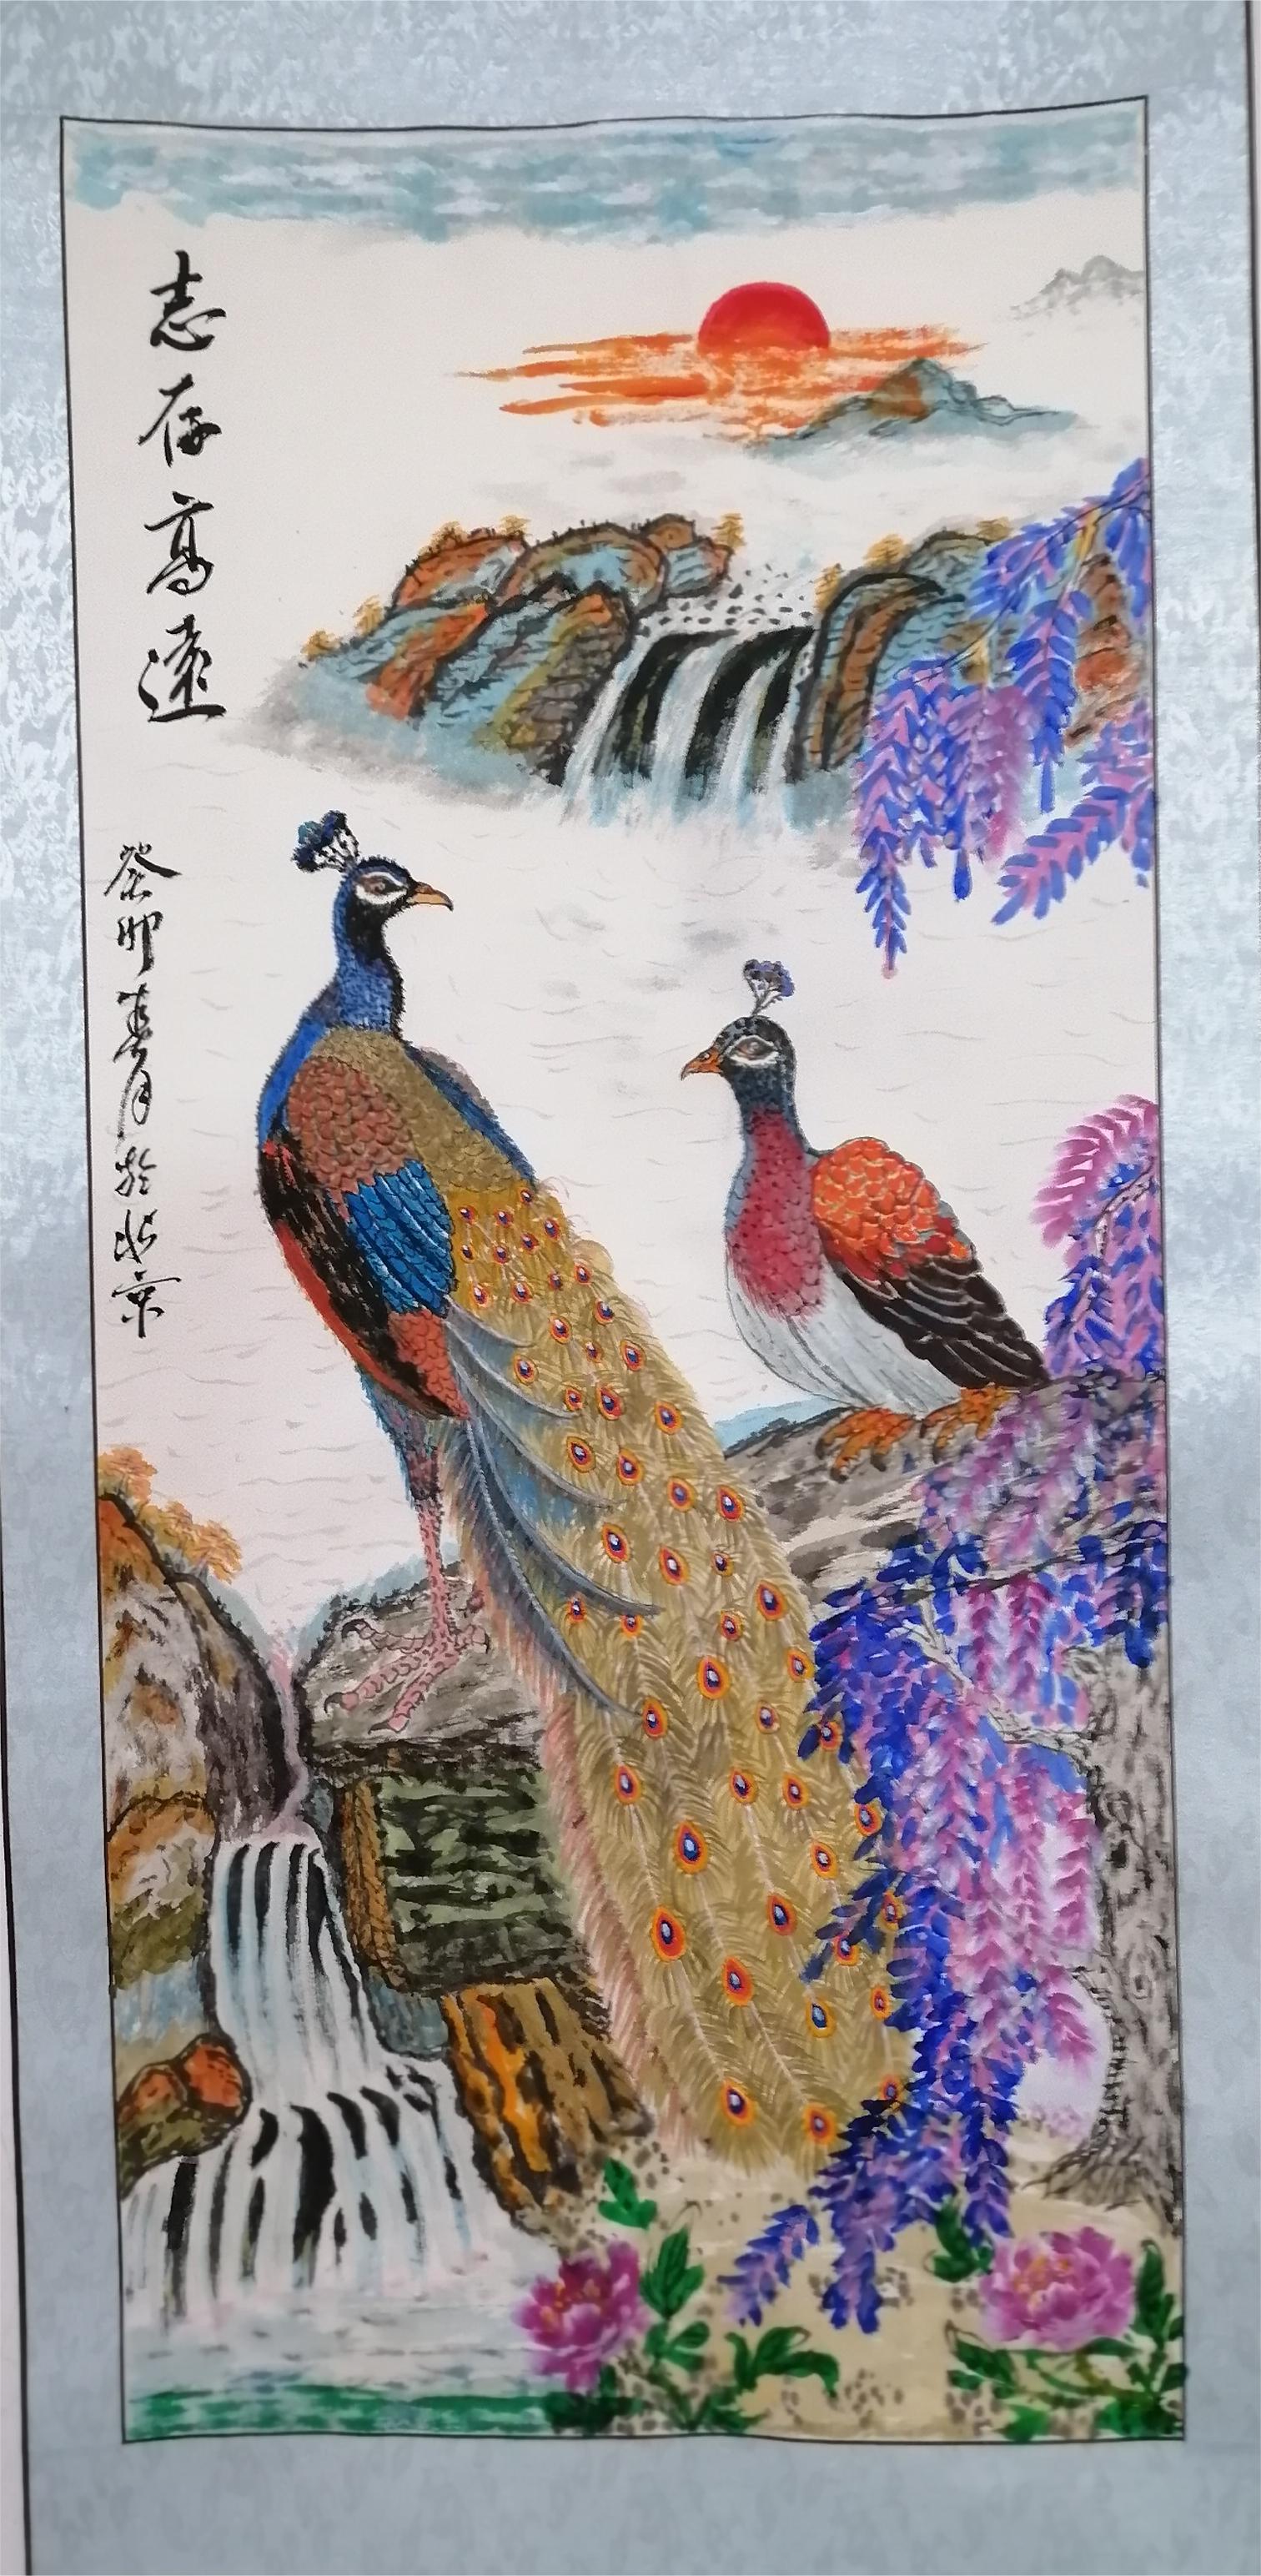 志存高遠
癸卯春月於北京